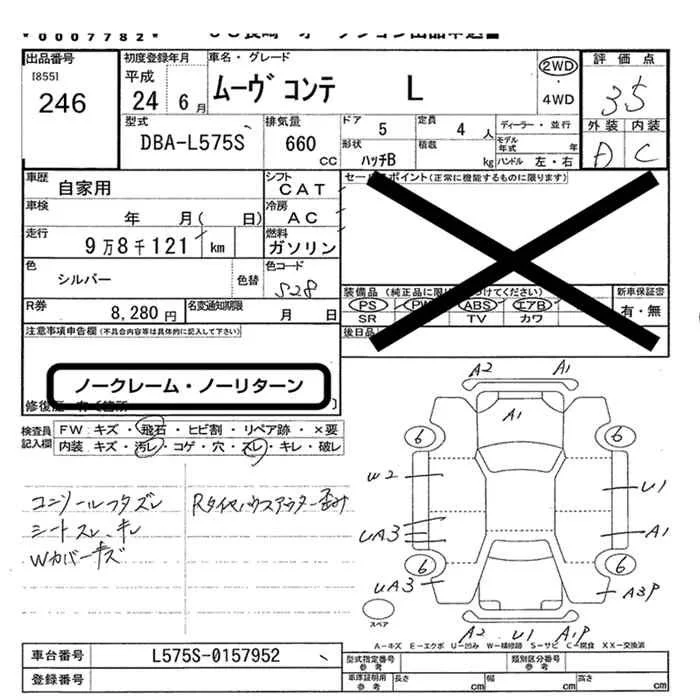 *0007782*
出品番号
[855]
246
初度登録年月
平成
24 6月
車名・グレード
ムーヴ コンテ L
2WD
・
4WD
評価点
35
外装 内装
A C
型式
DBA-L575S
排気量
660
CC
ドア 5
定員 4 人
形状 ハッチB
積載 kg
ディーラー・並行
モデル年式 年
ハンドル 左・右
車歴
自家用
シフト
CAT
セールスポイント(正常に機能するものに限ります)
車検
年 月( 日)
冷房
AC
走行
9万8千121 km
燃料
ガソリン
色
シルバー
色替
色コード
S28
装備品
PS PW ABS エアB
SR TV カワ
新車保証書
有・無
R券
8,280円
名変通知期限
月 日
後日品
注意事項申告欄(不具合内容等は具体的に記入して下さい)
ノークレーム・ノーリターン
検査員
記入欄
FW キズ・飛石・ヒビ割・リペア跡・×要
内装 キズ・汚レ・コゲ・穴・スレ・キレ・破レ
コンソールフタズレ
シートスレ、キレ
Wカバーキズ
A2 A1
A1
6 6
W2
U1
UA3
A1
6 6
UA3
A3P
スペア
A2 U1 A1P
A-キズ E-エクボ U-凹み W-補修跡 S-サビ C-腐食 XX-交換済
車台番号
L575S-0157952
登録番号
型式指定番号
参考
類別区分番号
参考
車庫証明用
参考
長さ cm
幅 cm
高さ cm